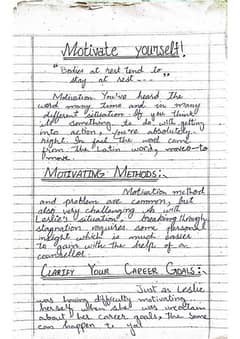 Motivate yourself!
"Bodies at rest tend to
stay at rest - - - "
Motivation. You've heard the
word many time and in many
different situation. If you think
it something to do with getting
into action, you're absolutely
right. In fact the word came
from the Latin word, moveo-to
move
MOTIVATING METHODS:.
Motivation method
and problem are common, but
also very challenging. As with
Leslie's situation, breaking through
stagnation requires some personal
insight which is much easier
to gain with the help of a
counsellor.
CLARIFY YOUR CAREER GOALS:.
Just as Leslie
was having difficulty motivating
herself when she was uncertain
about her career goals, the same
can happen to you